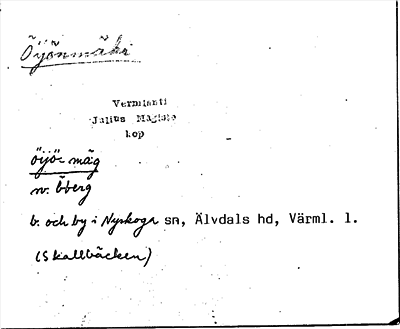 Öijönmäki
Vermlanti
Julius Mägiste
kop
öijö- mäg
nv. Öberg
b. och by i Nyskoga sn, Älvdals hd, Värml. l.
(Skallbäcken)